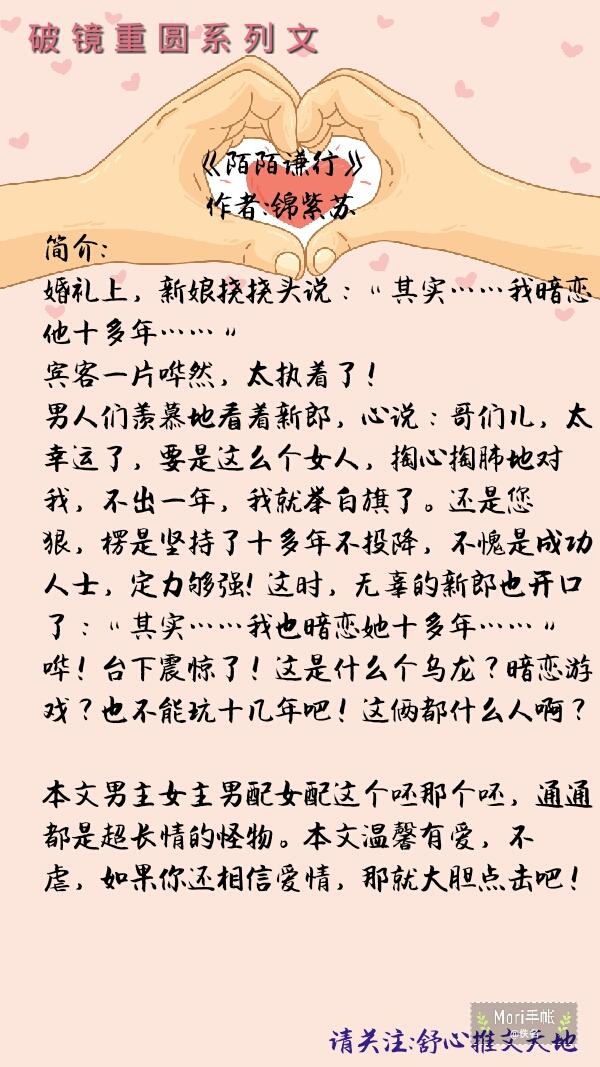 破镜重圆系列文
《陌陌谦行》
作者:锦紫苏
简介:
婚礼上，新娘挠挠头说：“其实……我暗恋
他十多年……”
宾客一片哗然，太执着了！
男人们羡慕地看着新郎，心说：哥们儿，太
幸运了，要是这么个女人，掏心掏肺地对
我，不出一年，我就举白旗了。还是您
狠，楞是坚持了十多年不投降，不愧是成功
人士，定力够强！这时，无辜的新郎也开口
了：“其实……我也暗恋她十多年……”
哗！台下震惊了！这是什么个乌龙？暗恋游
戏？也不能玩十几年吧！这俩都什么人啊？
本文男主女主男配女配这个呸那个呸，通通
都是超长情的怪物。本文温馨有爱，不
虐，如果你还相信爱情，那就大胆点击吧！
Mori手帐
请关注:舒心推文天地